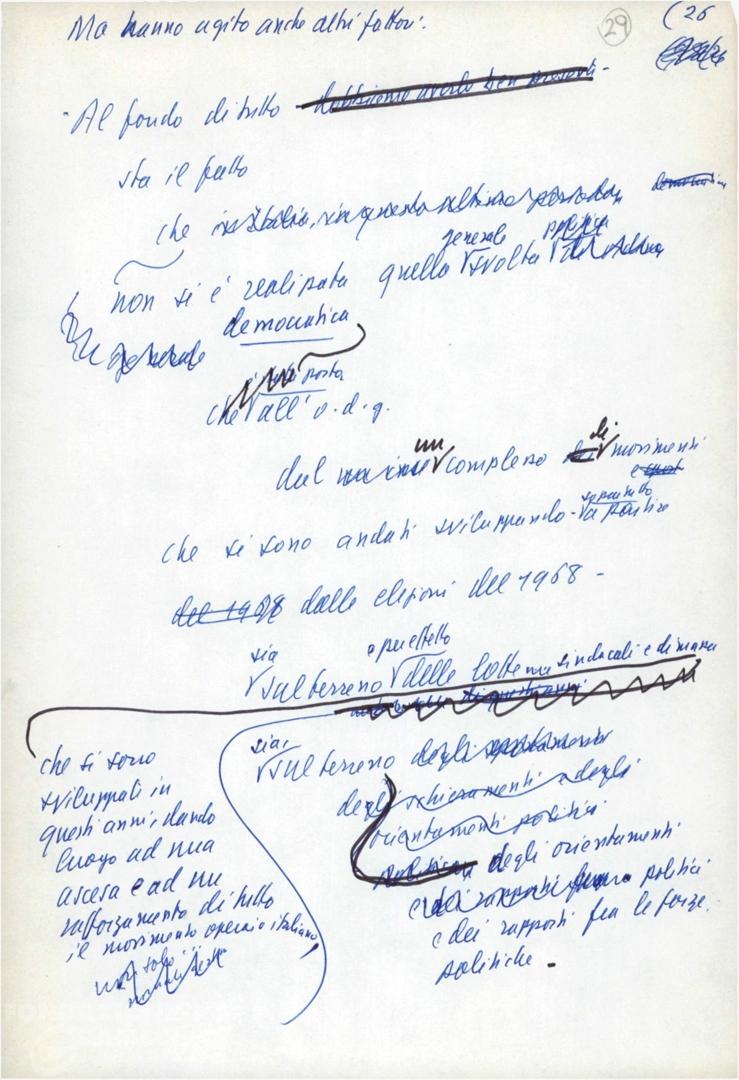 29
(26
Ma hanno agito anche altri fattori.
Al fondo di tutto - dobbiamo averlo ben presente -
sta il fatto
che in Italia, in questo ultimo periodo,
generale politica
non si è realizzata quella svolta
democratica
generale
è stata posta
che all'o.d.g.
un di
dal complesso movimenti
e
soprattutto
che si sono andati sviluppando - a partire
del 1968 dalle elezioni del 1968 -
sia e più
sul terreno delle lotte sindacali e di massa
che si sono
sviluppati in
questi anni, dando
luogo ad una
ascesa e ad un
rafforzamento di tutto
il movimento operaio italiano,
non solo
sia,
sul terreno degli
degli schieramenti e degli
orientamenti politici
degli orientamenti
e dei rapporti politici
e dei rapporti fra le forze
politiche.